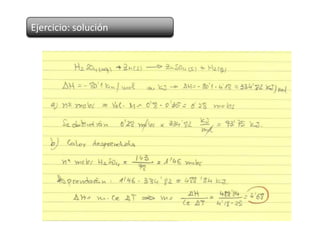 Ejercicio: solución
H₂SO₄(aq) + Zn(s) → ZnSO₄(s) + H₂(g)
ΔH = - 80'1 /mol en KJ → ΔH = -80'1 · 4'18 = 334'82 KJ/mol
a) nº moles = Vol · M = 0'8 · 0'35 = 0'28 moles
0'28 moles × 334'82 KJ/mol = 93'75 KJ.
b) Calor desprendido
nº moles H₂SO₄ = 143/98 = 1'46 moles
1'46 · 334'82 = 488'84 KJ
ΔH = m · Ce ΔT ⟹ m = ΔH/Ce ΔT = /4'18 · 25 = 4'68